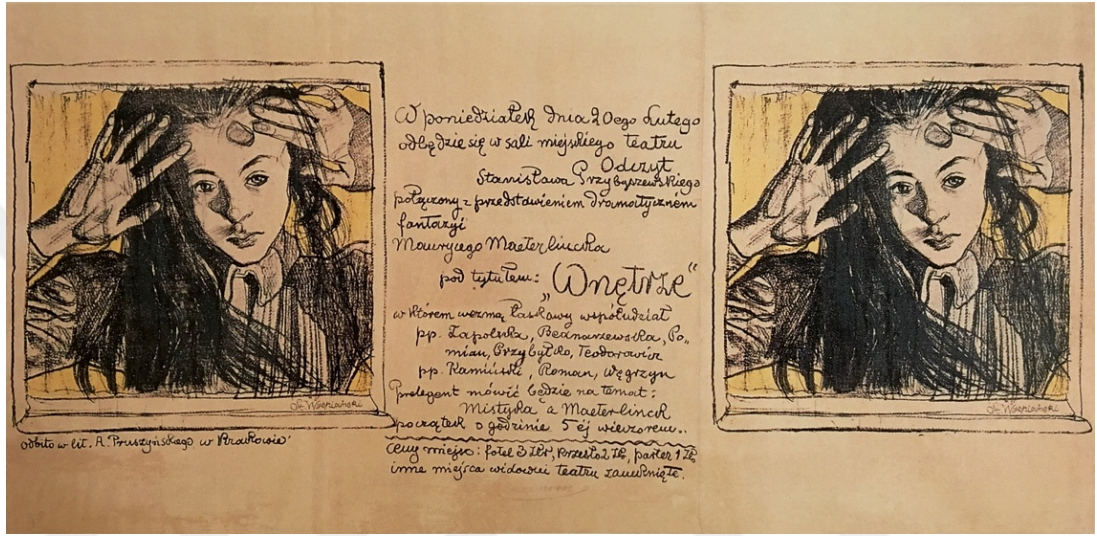 W poniedziałek dnia 20ego Lutego
odbędzie się w sali miejskiego teatru
Odczyt
Stanisława Przybyszewskiego
połączony z przedstawieniem dramatycznem
fantazyi
Maurycego Maeterlincka
pod tytułem: „Wnętrze"
w którem wezmą łaskawy współudział
pp. Zapolska, Bednarzewska, Po„
mian, Przybyłko, Teodorowicz
pp. Kamiński, Roman, Węgrzyn
prelegent mówić będzie na temat:
Mistyka a Maeterlinck
początek o godzinie 5ej wieczorem..
Ceny miejsc: fotel 3 złr, krzesło 2 złr, parter 1 złr
inne miejsca widowni teatru zamknięte.
St. Wyspiański
St. Wyspiański
odbito w lit. A. Pruszyńskiego w Krakowie